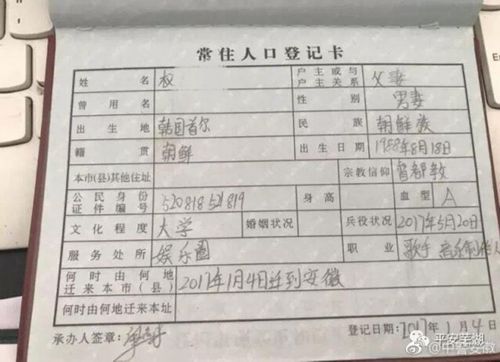 常住人口登记卡
姓名 权 户主或与户主关系 父妻
曾用名 性别 男妻
出生地 韩国首尔 民族 朝鲜族
籍贯 朝鲜 出生日期 1988年8月18日
本市(县)其他住址 宗教信仰 胥都教
公民身份证件编号 520818521819 身高 血型 A
文化程度 大学 婚姻状况 兵役状况 2017年5月20日
服务处所 娱乐圈 职业 歌手 音乐制作人
何时由何地迁来本市(县) 2017年1月4日迁到安徽
何时由何地迁来本址
承办人签章: 登记日期: 2017年1月4日
平安芜湖